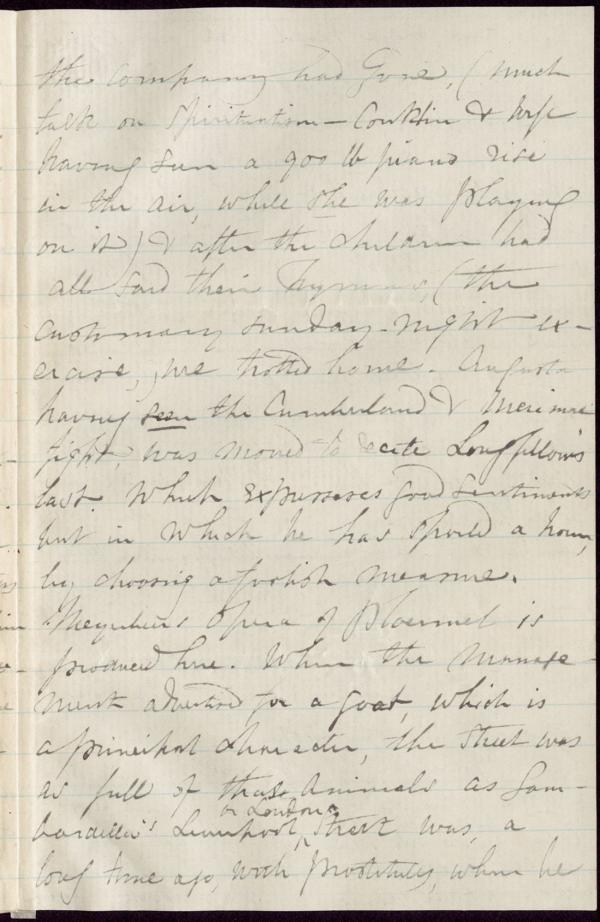 the company had gone, (much
talk on Spiritualism — Conklin & wife
having seen a 900 lb piano rise
in the air, while she was playing
on it) & after the children had
all said their hymns, (the
customary Sunday-night ex-
ercise,) we trotted home. Augusta
having seen the Cumberland & Merimac
fight, was moved to recite Longfellow's
last. Which expresses good sentiments
but in which he has spoiled a poem,
by choosing a foolish measure.
Meyerbeer's Opera of Ploermel is
produced here. When the manage-
ment advertised for a goat, which is
a principal character, the Street was
as full of those animals as Gam-
bardella's Liverpool or London Street was, a
long time ago, with prostitutes, when he